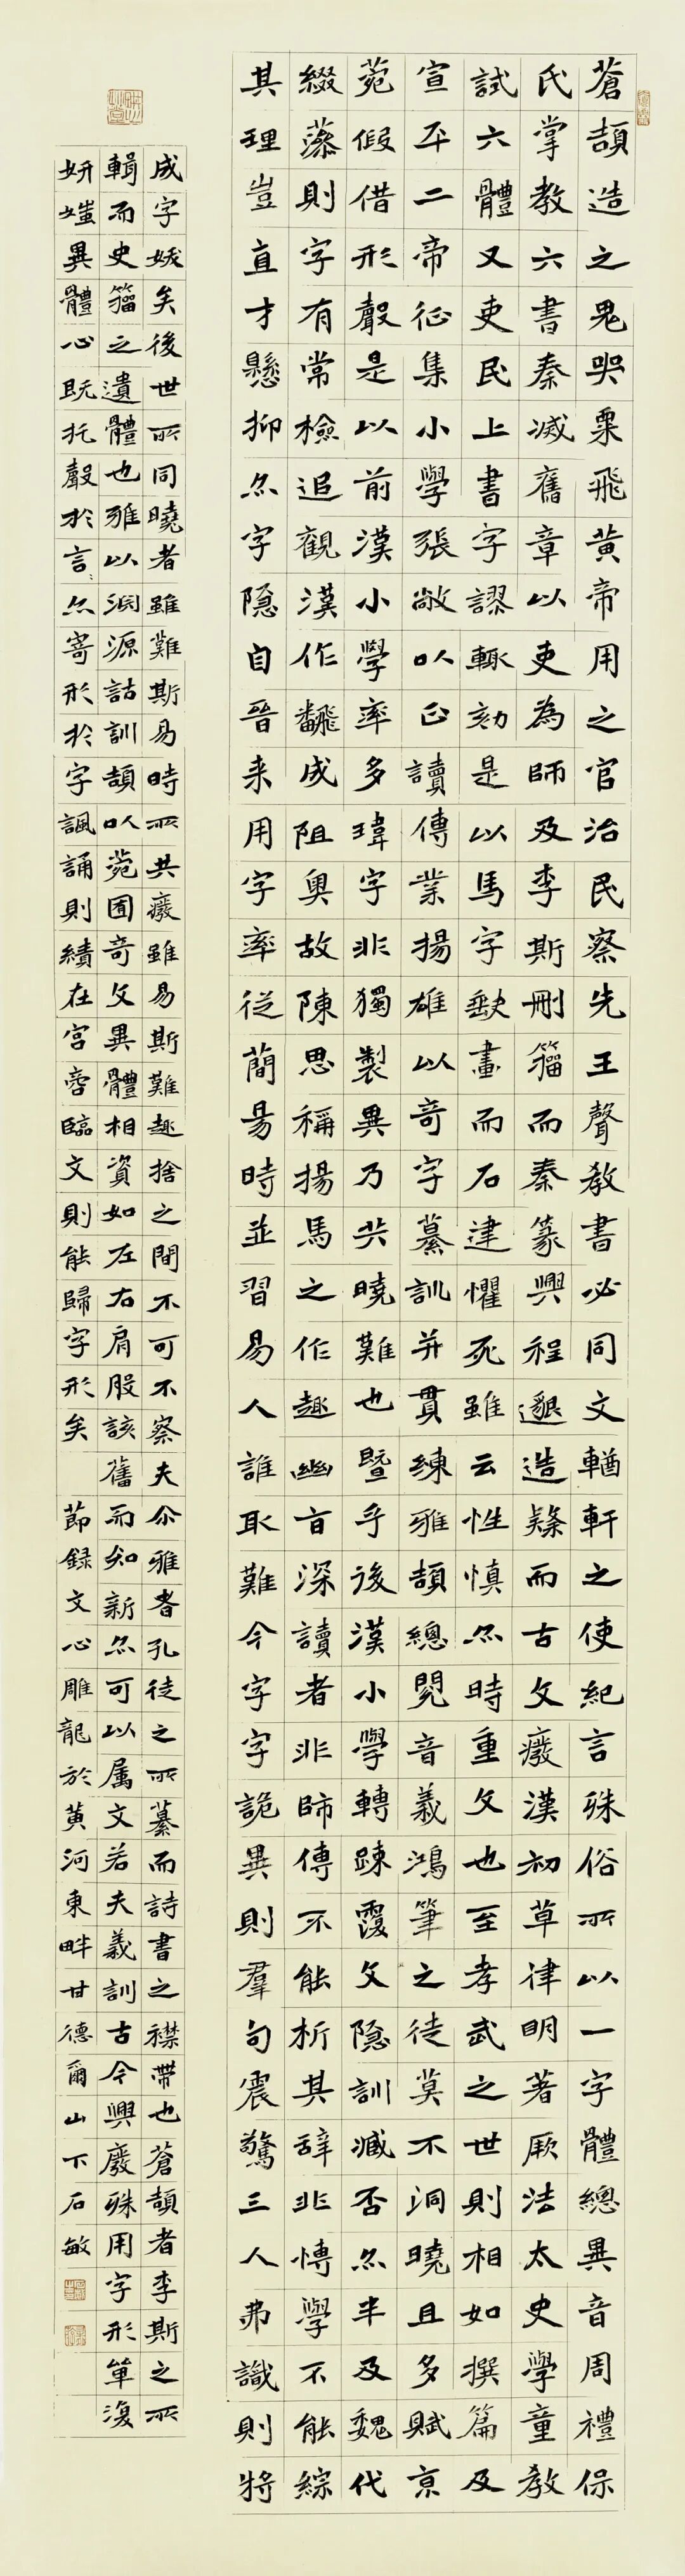 蒼頡造之鬼哭粟飛黃帝用之官治民察先王聲教書必同文輶軒之使紀言殊俗所以一字體總異音周禮保
氏掌教六書秦滅舊章以吏為師及李斯刪籀而秦篆興程邈造隸而古文廢漢初草律明著厥法太史學童教
試六體又吏民上書字謬輒劾是以馬字缺畫而石建懼死雖云性慎亦時重文也至孝武之世則相如撰篇及
宣平二帝征集小學張敞以正讀傳業揚雄以奇字纂訓并貫練雅頡總閱音義鴻筆之徒莫不洞曉且多賦京
苑假借形聲是以前漢小學率多瑋字非獨製異乃共曉難也暨乎後漢小學轉疎覆文隱訓臧否亦半及魏代
綴藻則字有常檢追觀漢作翻成阻奧故陳思稱揚馬之作趣幽旨深讀者非師傳不能析其辭非博學不能綜
其理豈直才懸抑亦字隱自晉来用字率從簡易時並習易人誰取難今字字詭異則羣句震驚三人弗識則將
成字妖矣後世所同曉者雖難斯易時所共廢雖易斯難趣捨之間不可不察夫尒雅者孔徒之所纂而詩書之襟帶也蒼頡者李斯之所
輯而史籀之遺體也雅以淵源詁訓頡以苑囿奇文異體相資如左右肩股該舊而知新亦可以属文若夫義訓古今興廢殊用字形單復
妍媸異體心既托聲於言亦寄形於字諷誦則績在宮商臨文則能歸字形矣 節録文心雕龍於黃河東畔甘德爾山下石敏